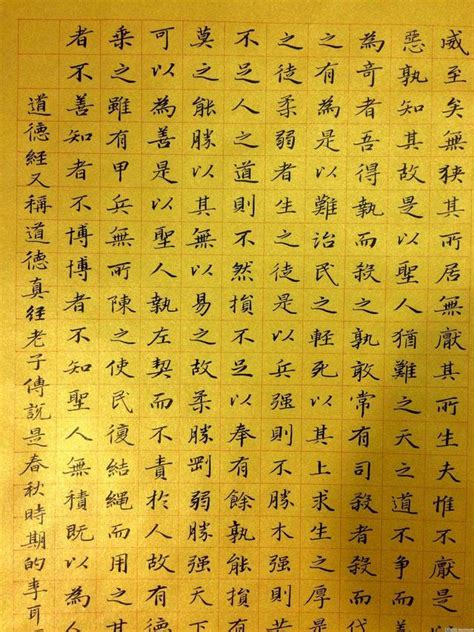 威至矣無狹其所居無厭其所生夫惟不厭是
惡孰知其故是以聖人猶難之天之道不争而
為奇者吾得執而殺之孰敢常有司殺者殺而代
之有為是以難治民之輕死以其上求生之厚是
之徒柔弱者生之徒是以兵强則不勝木强則
不足人之道則不然損不足以奉有餘孰能損
莫之能勝以其無以易之故柔勝剛弱勝强天下
可以為善是以聖人執左契而不責於人故
乘之雖有甲兵無所陳之使民復結繩而用之
者不善知者不博博者不知聖人無積既以為人
道德經又稱道德真径老子傳說是春秋時期的李耳